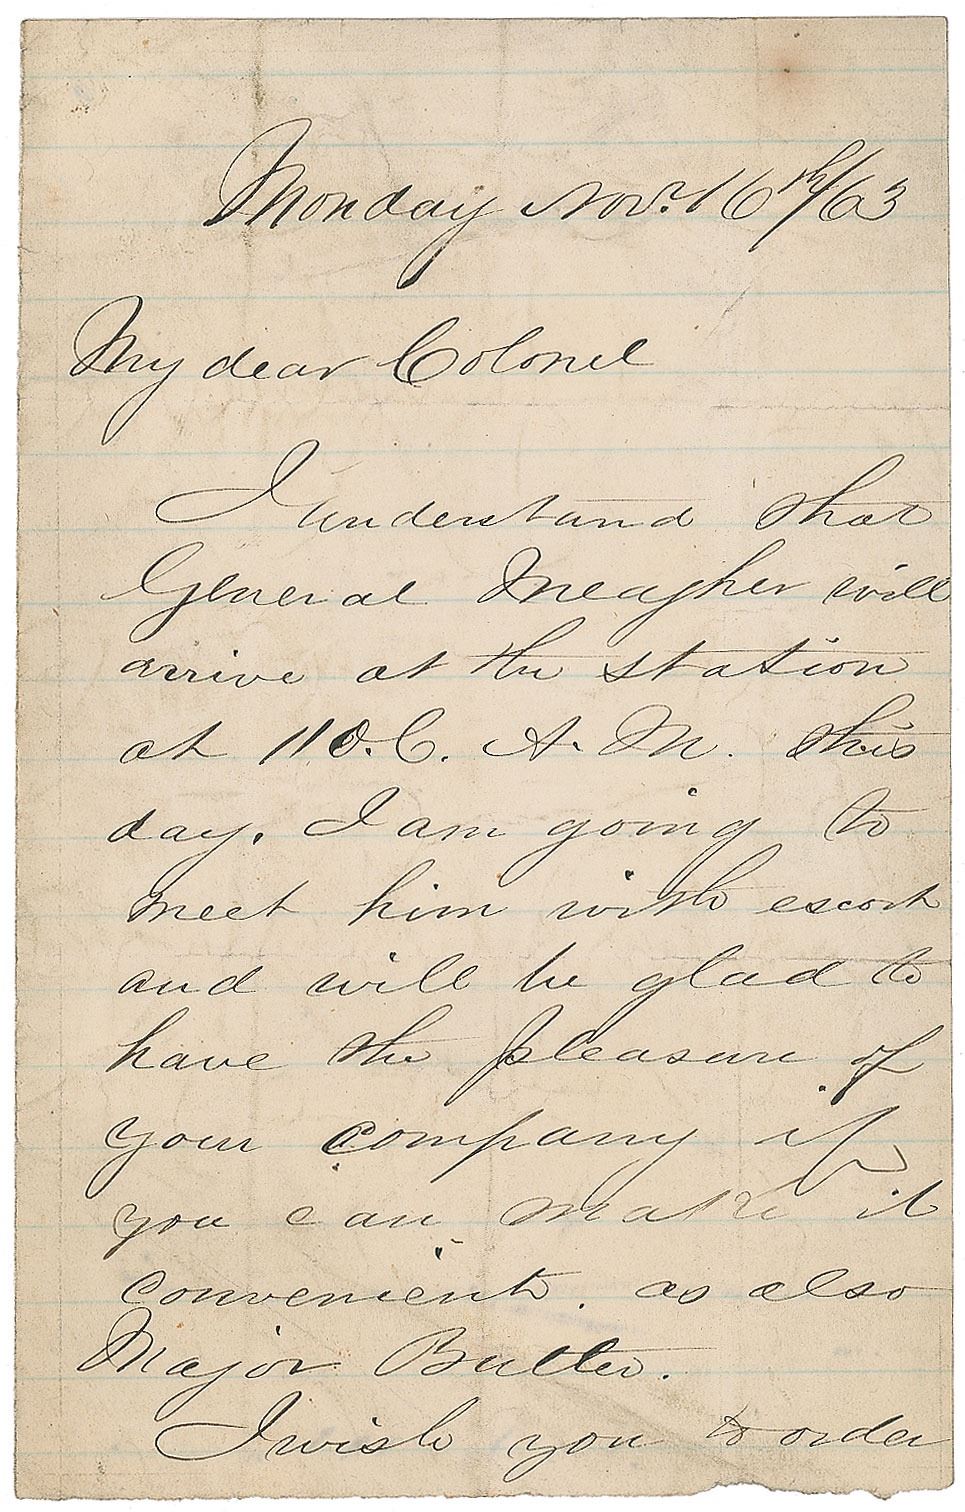 Monday Nov. 16th/63
My dear Colonel
I understand that
General Meagher will
arrive at the station
at 11 O.C. A.M. this
day. I am going to
meet him with escort
and will be glad to
have the pleasure of
your company if
you can make it
convenient. as also
Major Butler.
I wish you to order